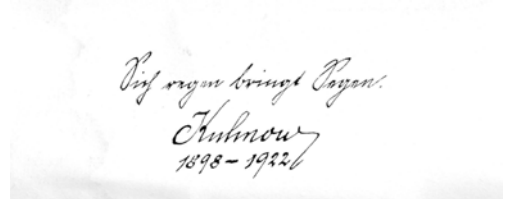 Sich regen bringt Segen.
Kulmow
1898 – 1922